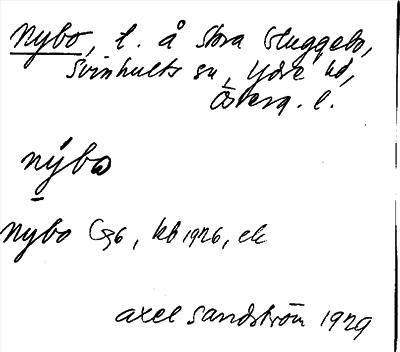 Nybo, t. å Stora Stuggebo,
Svinhults sn, Ydre hd,
Österg. l.
nýbω
Nybo G36, kb 1926, ek
Axel Sandström 1929